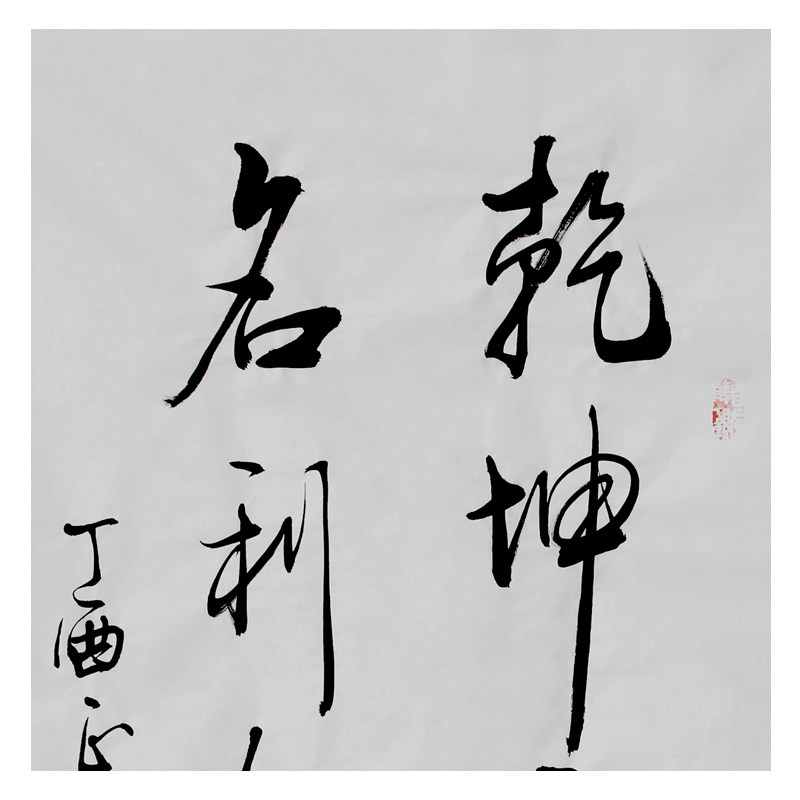 乾坤
名利
丁酉